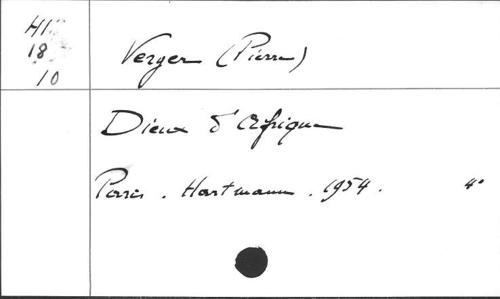 18
10
Verger (Pierre)
Dieux d'Afrique
Paris. Hartmann. 1954. 4°